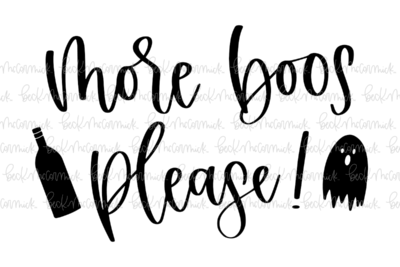 more boos
please!